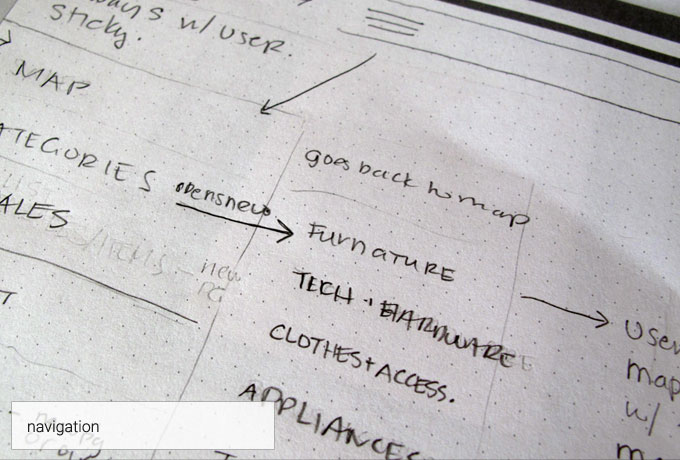 w/ user.
sticky.
MAP
ATEGORIES
ALES
opens new
new
goes back to map
FURNATURE
TECH + HARDWARE
CLOTHES + ACCESS.
APPLIANCES
User
map
w/
navigation